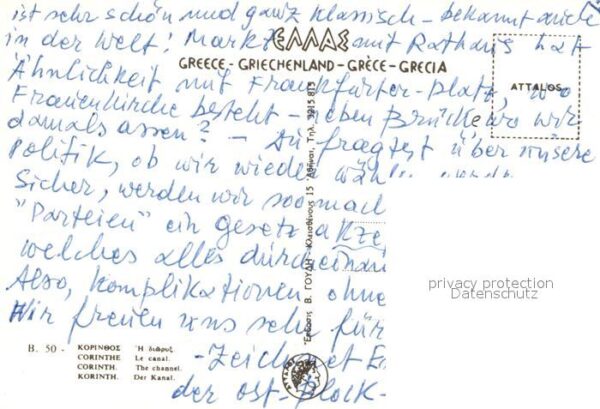 ist sehr schön und ganz klassisch - bekannt auch
in der Welt! Markt mit Rathaus hat
ΕΛΛΑΣ
GREECE - GRIECHENLAND - GRÈCE - GRECIA
ATTALOS
Ähnlichkeit mit Frankfurter-Platz, wo
Frauenkirche besteht - neben Brücke wo wir
damals assen? - Du fragtest über unsere
Politik, ob wir wieder
Sicher, werden wir
"Parteien" ein Gesetz
welches alles durcheinan
Also, Komplikationen ohne
Wir freuen uns sehr für
- Zeich et
der Ost-Block-
Έκδοσις Β. ΓΟΥΔΗ - Κλεισθένους 15 Αθήναι, Τηλ. 3215.813
privacy protection
Datenschutz
B. 50 - ΚΟΡΙΝΘΟΣ Ἡ διῶρυξ
CORINTHE Le canal.
CORINTH. The channel.
KORINTH. Der Kanal.